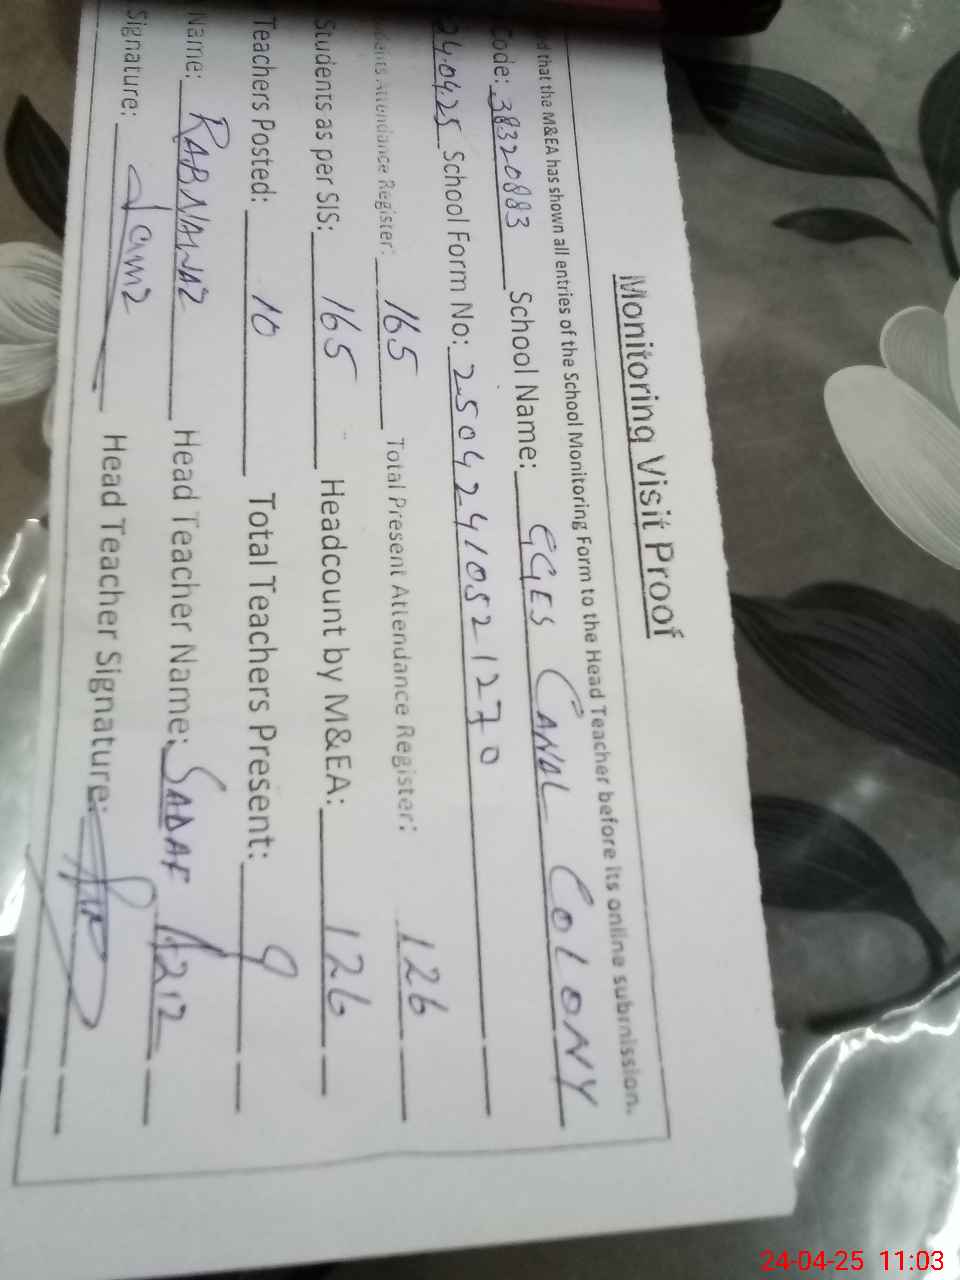 Monitoring Visit Proof
that the M&EA has shown all entries of the School Monitoring Form to the Head Teacher before its online submission.
Code: 38320883 School Name: GGES CANAL COLONY
24.04.25 School Form No: 25042410521270
Attendance Register: 165 Total Present Attendance Register: 126
Students as per SIS: 165 Headcount by M&EA: 126
Teachers Posted: 10 Total Teachers Present: 9
Name: RABNAWAZ Head Teacher Name: SADAF AZIZ
Signature: Head Teacher Signature:
24-04-25 11:03